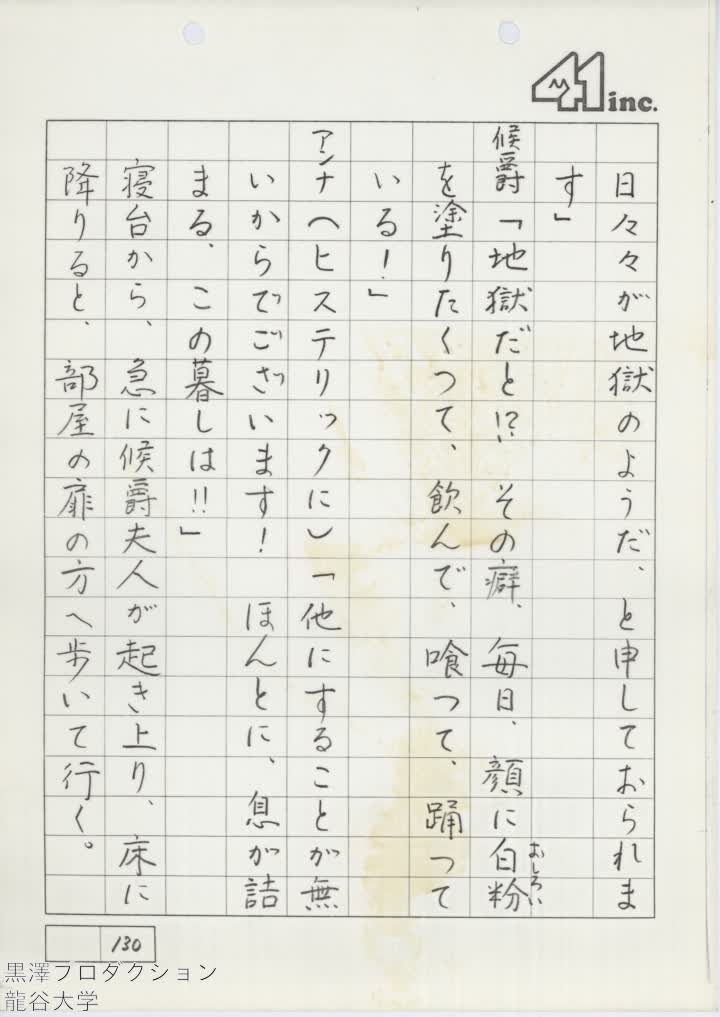 41 inc.
日々々が地獄のようだ、と申しておられま
す」
候爵「地獄だと!? その癖、毎日、顔に白粉
おしろい
を塗りたくつて、飲んで、喰つて、踊つて
いる!」
アンナ(ヒステリックに)「他にすることが無
いからでございます! ほんとに、息が詰
まる、この暮しは!!」
寝台から、急に候爵夫人が起き上り、床に
降りると、部屋の扉の方へ歩いて行く。
130
黒澤プロダクション
龍谷大学